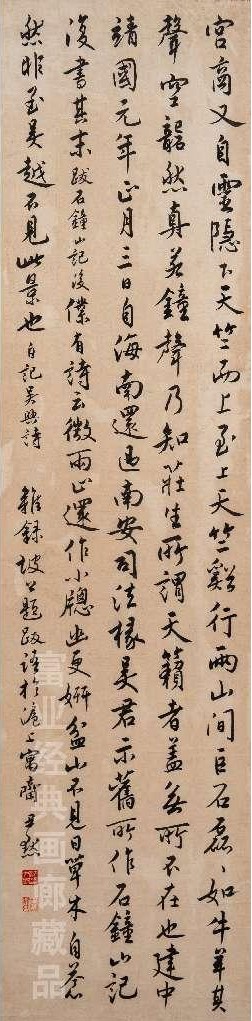 宫商又自靈隱下天竺而上至上天竺谿行兩山間巨石磊磊如牛羊其
聲空礱然真若鐘聲乃知莊生所謂天籟者盖無所不在也建中
靖國元年正月三日自海南還過南安司法掾吴君示舊所作石鐘山記
復書其末跋石鐘山記後僕有詩云微雨止還作小窗幽更妍盆山不見日草木自蒼
然非至吴越不見此景也自記吴興詩
雜録坡公題跋語於滬上寓齋尹默
富业经典画廊藏品